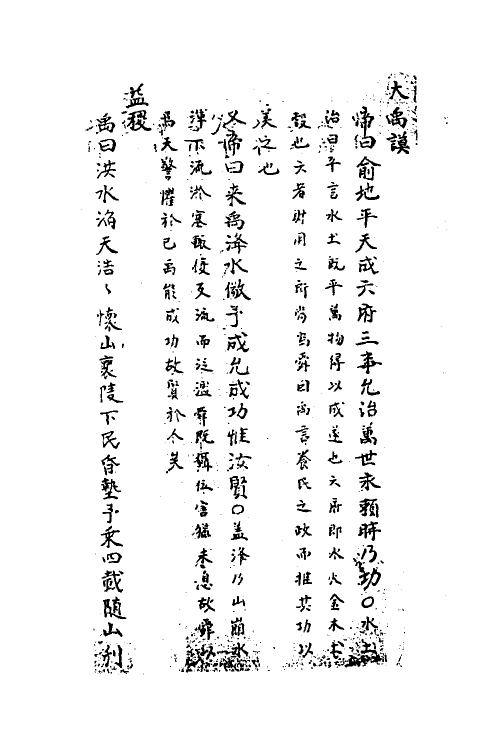 大禹謨
帝曰俞地平天成六府三事允治萬世永賴時乃功○水土
治曰平言水土既平萬物得以成遂也六府即水火金木土
穀也六者財用之所尚寫舜因禹言養民之政而推其功以
美之也
又帝曰来禹洚水儆予成允成功惟汝賢○盖洚乃山崩水
渾下流淤塞輒復反流而泛濫舜既攝位害猶未息故舜以
為天警懼於己禹能成功故賢於人矣
益稷
禹曰洪水滔天浩〻懷山襄陵下民昏墊予乘四載随山刊